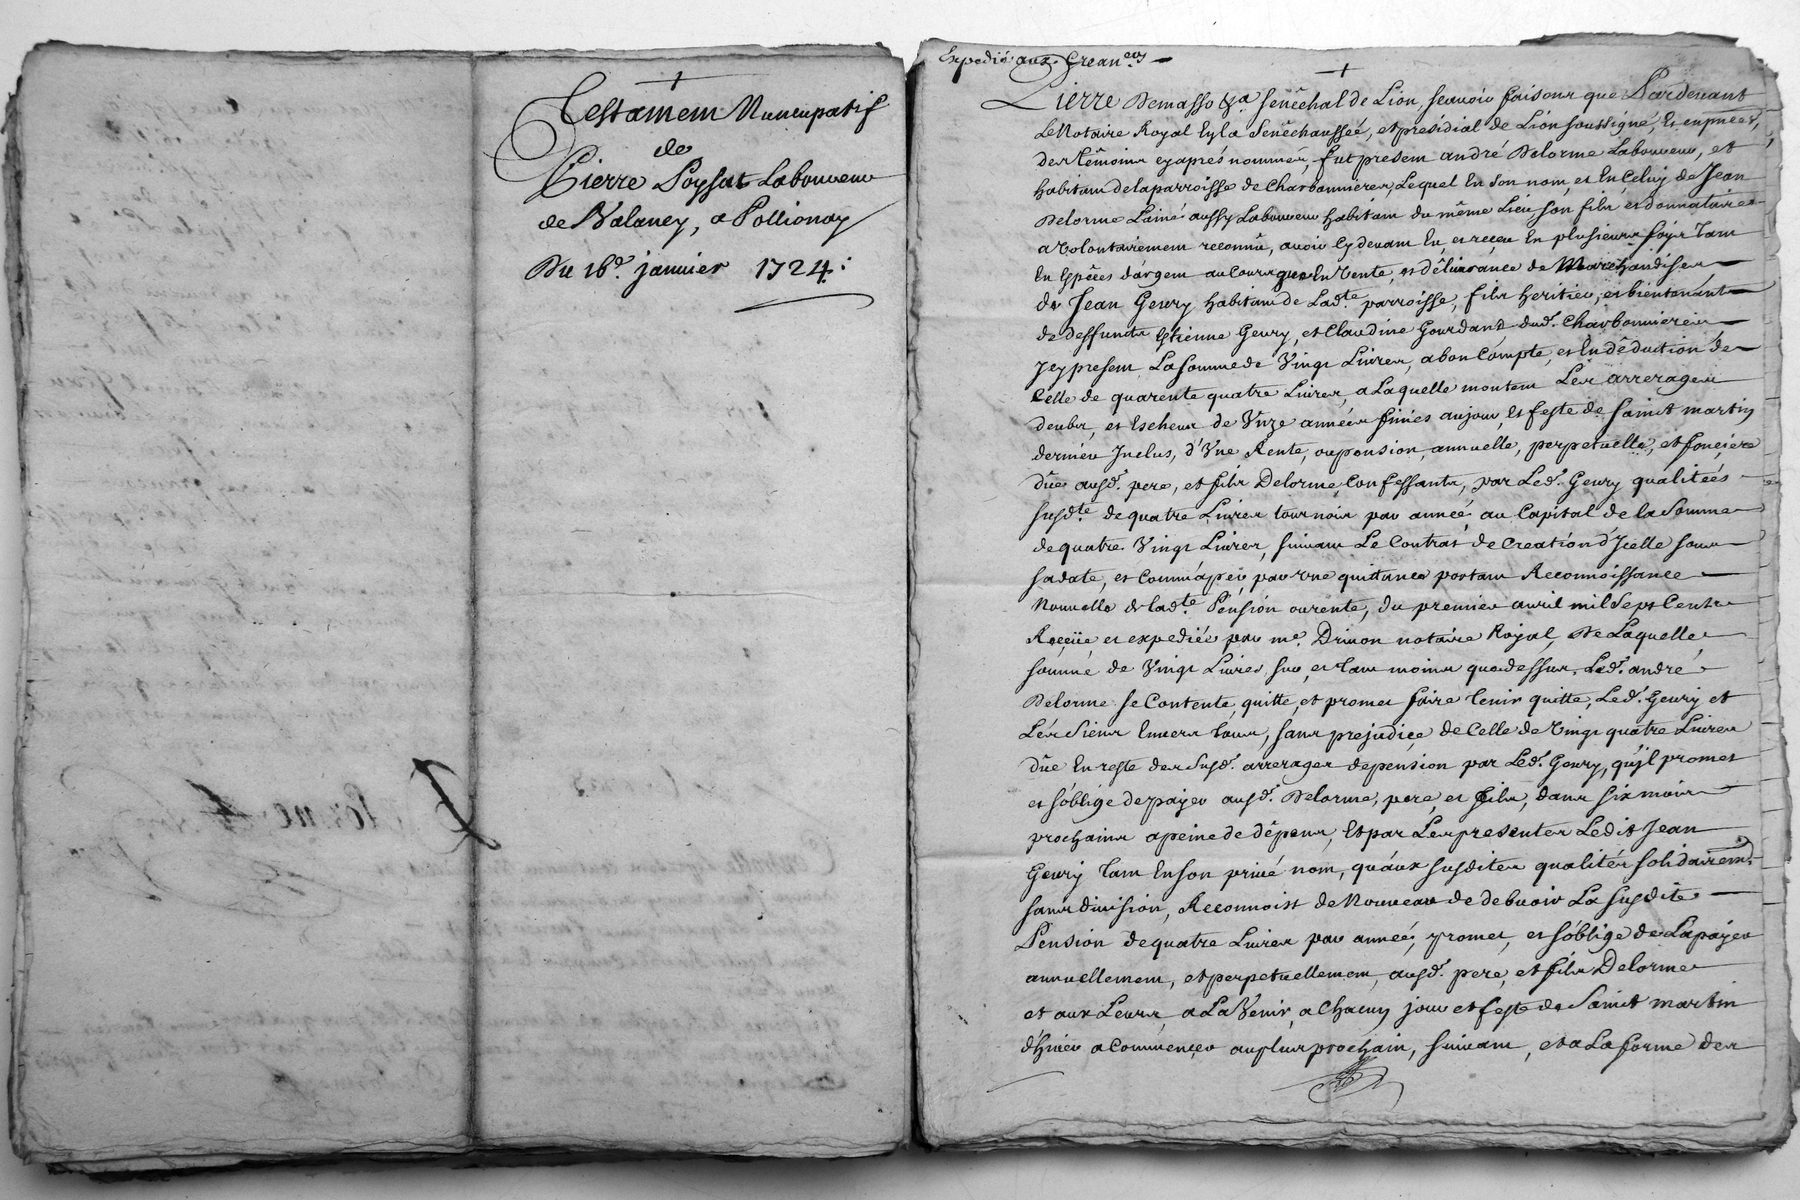 Testament Nuncupatif
de
Pierre Poysat Laboureur
de Valancy, a Pollionay
Du 16e. janvier 1724:
Expedié aux Crean.ers
Pierre Demasso &a Senêchal de Lion, scavoir faisons que Pardevant
Le Notaire Royal En la Senêchaussée, et presidial de Lion soussigné, Et en pnce,
des têmoins cyaprés nommés, fut present andré Delorme Laboureur, et
habitant de la parroisse de Charbonnieres, Lequel En son nom, et En Celuy de Jean
Delorme L'ainé aussy Laboureur habitant du même Lieu son fils et donnataire
a Volontairement reconnû, avoir Cy devant Eu et reçeu En plusieurs foys Tant
En Espêces d'argent au Cours que En Vente, et dêlivrance de Marchandises
de Jean Geury habitant de Lad.te parroisse, fils heritier, et bientenant
de deffuncts Estienne Geury, et Claudine Gourdant dud. Charbonnieres
Jcy present La somme de Vingt Livres, a bon Compte, et En dêduction de
Celle de quarente quatre Livres, a Laquelle montent Les arrerages
deubs, et Escheus de Unze années finies au jour, et feste de Sainct martin
dernier Inclus, d'Une Rente, ou pension, annuelle, perpetuelle, et fonciere
dûe ausd. pere, et fils Delorme, Confessants, par Led. Geury qualitées
susd.te de quatre Livres tournois par année, au Capital de la Somme
de quatre Vingt Livres, suivant Le Contrat de Creation d'Jcelle sous
sa date, et Comm'apeir par Une quittance portant Reconnoissance
Nouvelle de lad.te Pension ou rente, du premier avril mil Sept Cents
Reçeüe et expediée par me. Drivon notaire Royal, De Laquelle
somme de Vingt Livres sur, et tant moins que dessus, Led. andré
Delorme se Contente, quitte, et promet faire tenir quitte, Led. Geury et
Les Siens Envers tous, sans prejudice de Celle de Vingt quatre Livres
dûe En reste des Susd. arrerages de pension par Led. Geury, qu'jl promet
et s'oblige de payer ausd. Delorme, pere et fils, dans six mois
prochains a peine de dêpens, Et par Les presentes Ledit Jean
Geury Tant En son privé nom, qu'aux susdites qualités solidairem.t
sans division, Reconnoist de Nouveau de debvoir La Susdite
Pension de quatre Livres par année, promet, et s'oblige de La payer
annuellement, et perpetuellement, ausd. pere, et fils Delorme
et aux Leurs, a La Venir, a Chacun jour et feste de Sainct martin
d'hiver a Commencer au plus prochain, suivant, et a La forme des